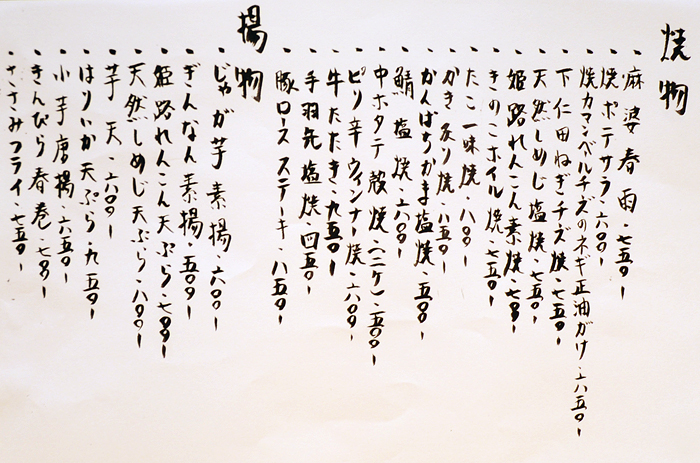 焼物
・麻婆春雨・七五〇ー
・焼ポテサラ・六〇〇ー
・焼カマンベルチーズのネギ正油がけ・八五〇ー
・下仁田ねぎチーズ焼・七五〇ー
・天然しめじ塩焼・七五〇ー
・姫路れんこん素焼・七〇〇ー
・きのこホイル焼・七五〇ー
・たこ一味焼・八〇〇ー
・かき炙り焼・八五〇ー
・かんぱちかま塩焼・五〇〇ー
・鯖塩焼・六〇〇ー
・中ホタテ殻焼・(二ケ)・五〇〇ー
・ピリ辛ウィンナー焼・六〇〇ー
・牛たたき・九五〇ー
・手羽先塩焼・四五〇ー
・豚ロースステーキ・八五〇ー
揚物
・じゃが芋素揚・六〇〇ー
・ぎんなん素揚・五〇〇ー
・姫路れんこん天ぷら・七〇〇ー
・天然しめじ天ぷら・八〇〇ー
・芋天・六〇〇ー
・はりいか天ぷら・九五〇ー
・小芋唐揚・六五〇ー
・きんぴら春巻・七〇〇ー
・ささみフライ・七五〇ー